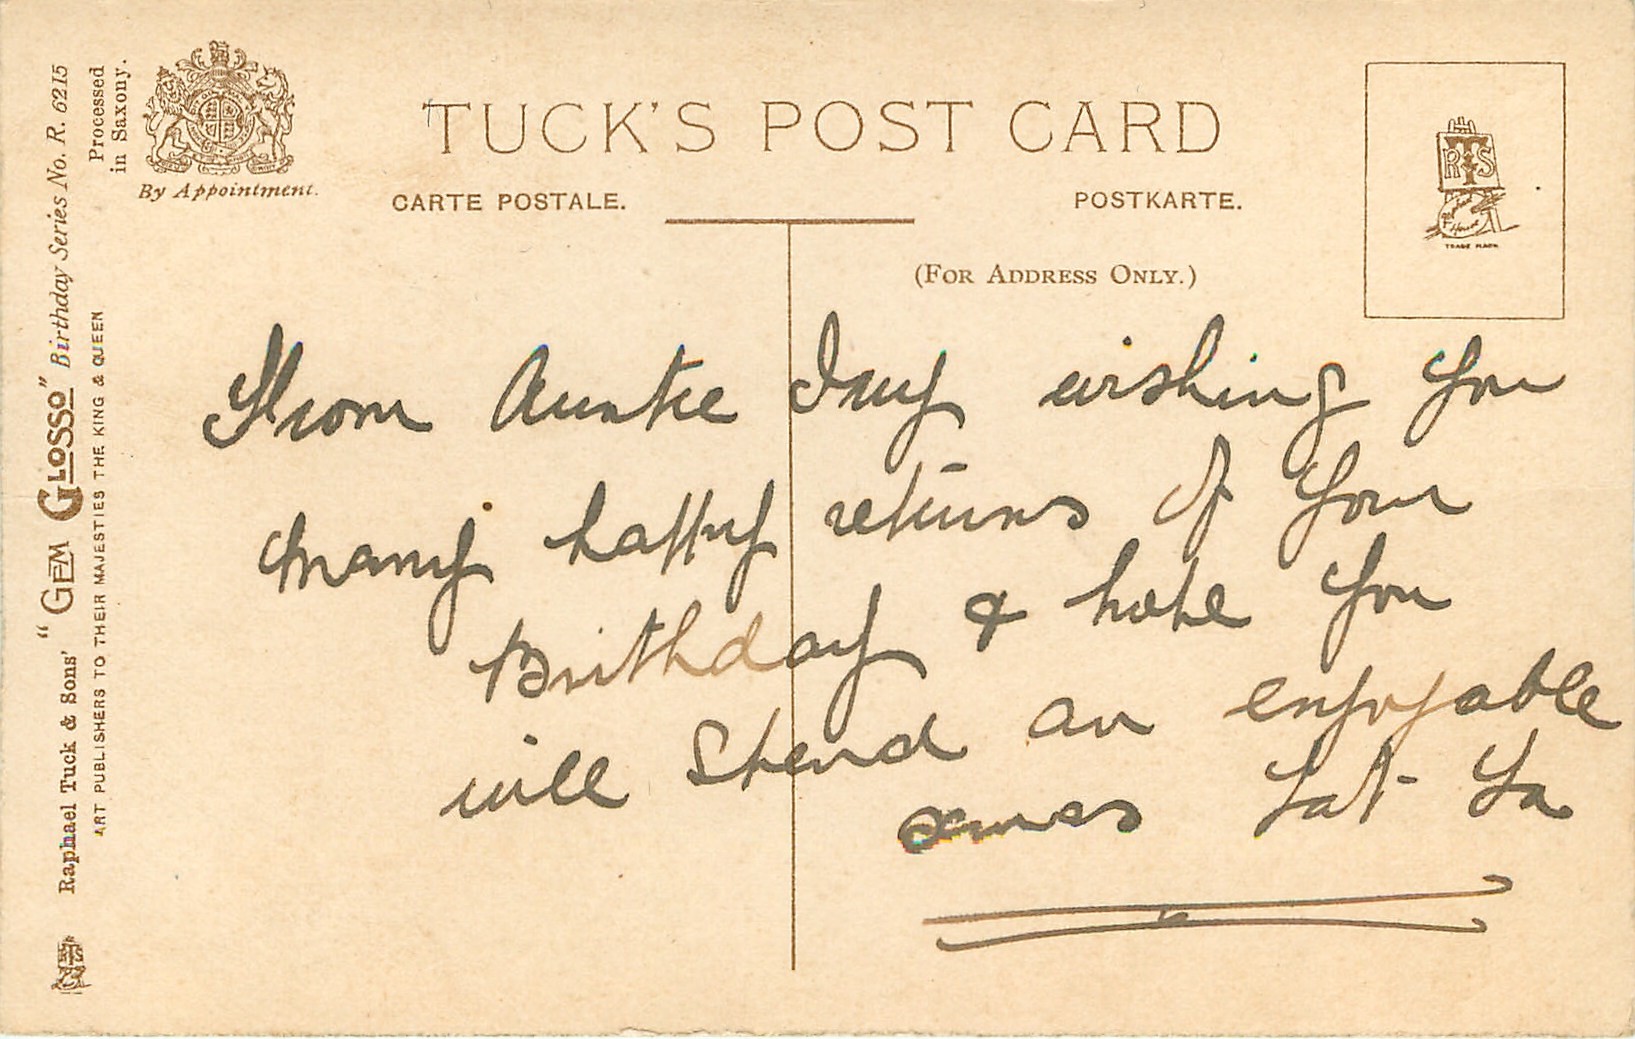 TUCK'S POST CARD
By Appointment.
CARTE POSTALE.
POSTKARTE.
(FOR ADDRESS ONLY.)
RTS
TRADE MARK
Raphael Tuck & Sons' "GEM GLOSSO" Birthday Series No. R. 6215
ART PUBLISHERS TO THEIR MAJESTIES THE KING & QUEEN
Processed
in Saxony.
From Auntie wishing you
many happy returns of your
Birthday & hope you
will spend an enjoyable
xmas Tat Ta